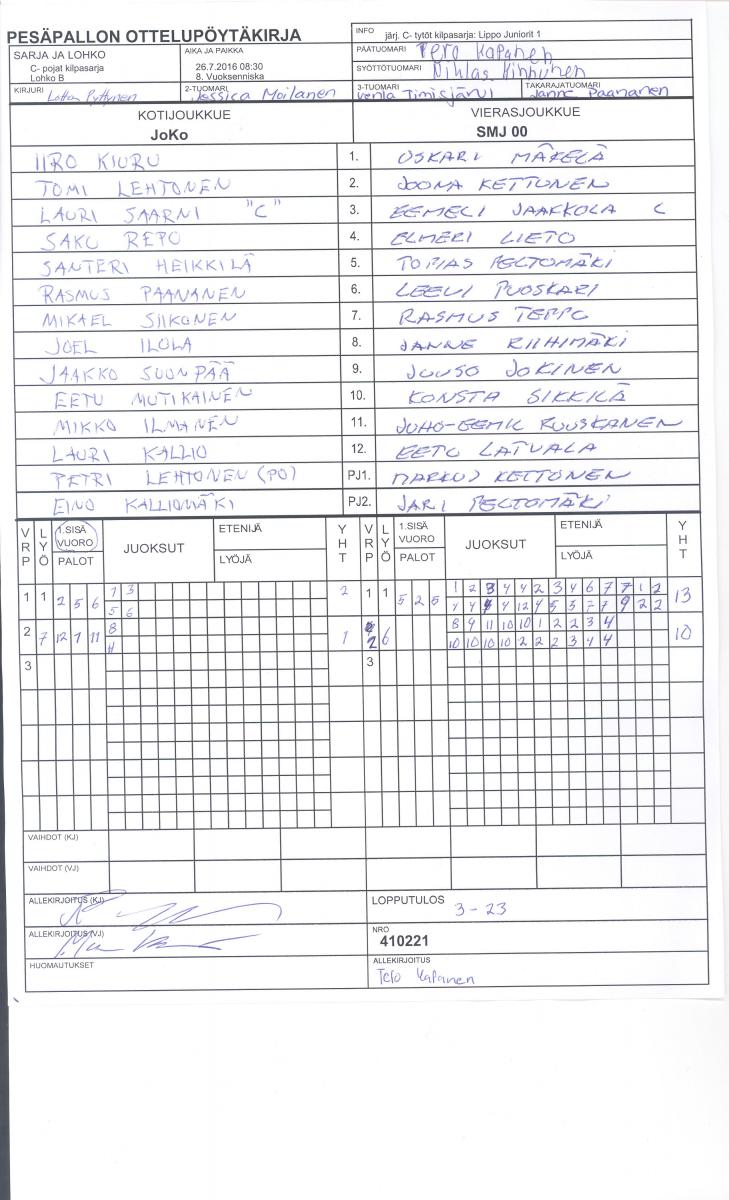 PESÄPALLON OTTELUPÖYTÄKIRJA
INFO järj. C- tytöt kilpasarja: Lippo Juniorit 1
SARJA JA LOHKO
C- pojat kilpasarja
Lohko B
AIKA JA PAIKKA
26.7.2016 08:30
8. Vuoksenniska
PÄÄTUOMARI Tero Kapanen
SYÖTTÖTUOMARI Niklas Kinnunen
KIRJURI Lotta Pyttynen
2-TUOMARI Jessica Moilanen
3-TUOMARI Venla Timisjärvi
TAKARAJATUOMARI Janne Paananen
KOTIJOUKKUE VIERASJOUKKUE
JoKo SMJ 00
IIRO KIURU 1. OSKARI MÄKELÄ
TOMI LEHTONEN 2. JOONA KETTUNEN
LAURI SAARNI "C" 3. EEMELI JAAKKOLA C
SAKU REPO 4. ELMERI LIETO
SANTERI HEIKKILÄ 5. TOPIAS PELTOMÄKI
RASMUS PAANANEN 6. LEEVI PUOSKARI
MIKAEL SIIKONEN 7. RASMUS TEPPO
JOEL ILOLA 8. JANNE RIIHIMÄKI
JAAKKO SUONPÄÄ 9. JUUSO JOKINEN
EETU MUTIKAINEN 10. KONSTA SIKKILÄ
MIKKO ILMANEN 11. JUHO-EEMIL RUUSKANEN
LAURI KALLIO 12. EETU LATVALA
PETRI LEHTONEN (PO) PJ1. MARKUS KETTUNEN
EINO KALLIOMÄKI PJ2. JARI PELTOMÄKI
VRP LYÖ 1.SISÄ VUORO PALOT JUOKSUT ETENIJÄ LYÖJÄ YHT VRP LYÖ 1.SISÄ VUORO PALOT JUOKSUT ETENIJÄ LYÖJÄ YHT
1 1 2 5 6 1 3 2 1 1 5 2 5 1 2 3 4 4 2 3 4 6 7 7 1 2 13
5 6 4 4 4 4 12 4 5 5 7 7 9 2 2
2 7 12 1 11 8 1 2 6 8 9 11 10 10 1 2 2 3 4 10
11 10 10 10 10 2 2 2 3 4 4
3 3
VAIHDOT (KJ)
VAIHDOT (VJ)
ALLEKIRJOITUS (KJ)
LOPPUTULOS 3 - 23
ALLEKIRJOITUS (VJ)
NRO
410221
HUOMAUTUKSET
ALLEKIRJOITUS
Tero Kapanen